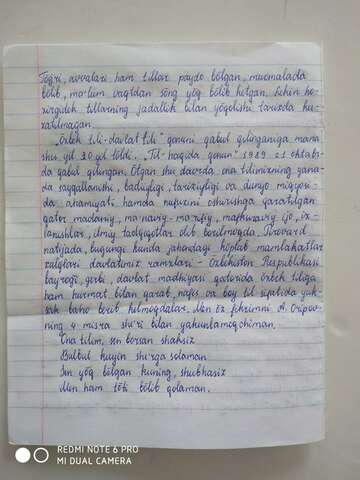 Tog'ri, avvalari ham tillar paydo bo'lgan, muomalada
bo'lib, ma'lum vaqtdan so'ng yo'q bo'lib ketgan. Lekin ho-
zirgidek tillarning jadallik bilan yo'qolishi tarixda ku-
zatilmagan.
„O'zbek tili-davlat tili" qonuni qabul qilinganiga mana
shu yil 30 yil to'ldi. „Til haqida qonun" 1989 21 oktabr-
da qabul qilingan. O'tgan shu davrda ona tilimizning yana-
da sayqallanishi, badiiyligi, tarixiyligi va dunyo miqyosi-
da ahamiyati hamda nufuzini oshirishga qaratilgan
qator madaniy, ma'naviy-ma'rifiy, mafkuraviy ijo, ix-
lanishlar, ilmiy tadqiqotlar olib borilmoqda. Pirovard
natijada, bugungi kunda jahondagi ko'plab mamlakatlar
xalqlari davlatimiz ramzlari - O'zbekiston Respublikasi
bayrog'i, gerbi, davlat madhiyasi qatorida o'zbek tiliga
ham hurmat bilan qarab, nafis va boy til sifatida yuk-
sak baho berib kelmoqdalar. Men o'z fikrimni A. Oripov-
ning 4 misra she'ri bilan yakunlamoqchiman.
Ona tilim, sen borsan shaksiz
Bulbul kuyin she'rga solaman
Sen yo'q bo'lgan kuning, shubhasiz
Men ham to'ti bo'lib qolaman.
REDMI NOTE 6 PRO
MI DUAL CAMERA